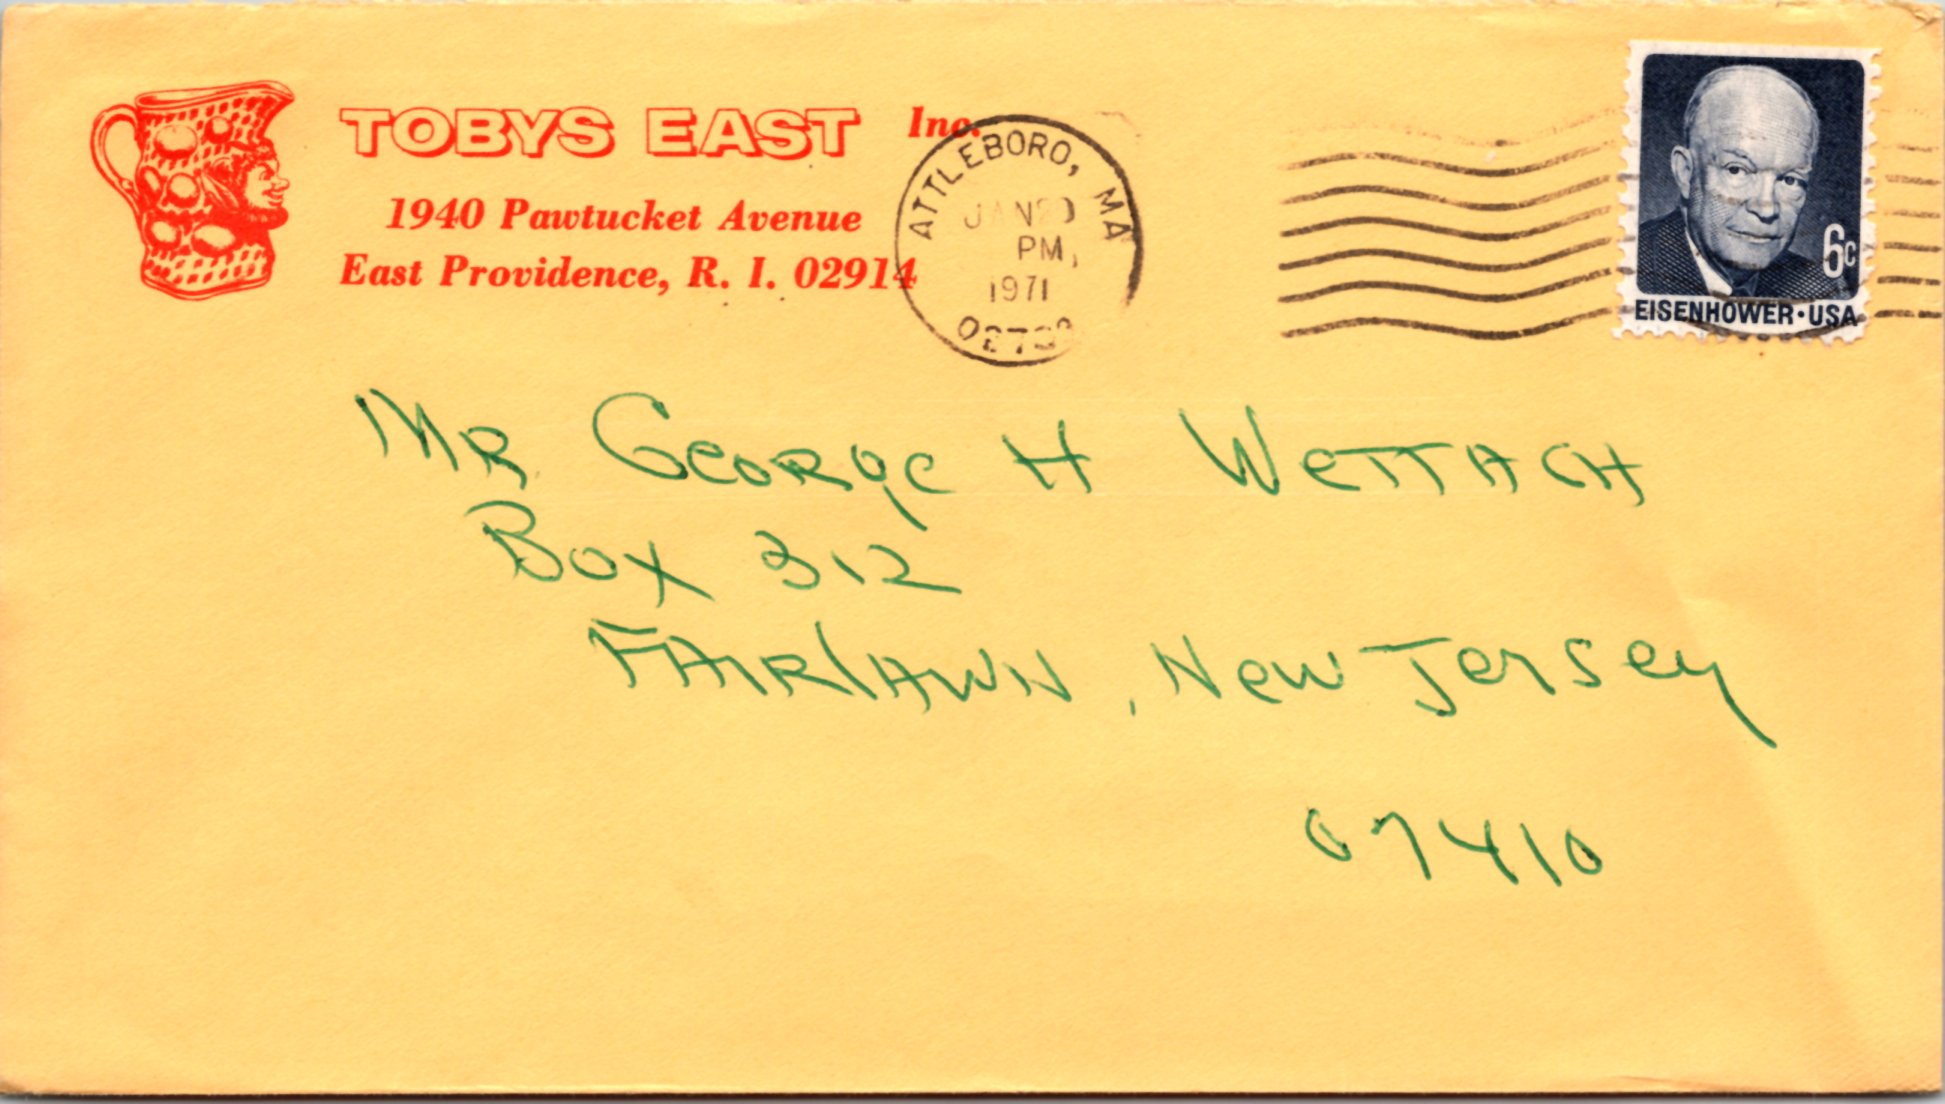 TOBYS EAST Inc.
1940 Pawtucket Avenue
East Providence, R. I. 02914
ATTLEBORO, MA
JAN 20
PM
1971
6c
EISENHOWER·USA
MR George H Wettach
Box 312
FAIRlAWN, New Jersey
07410